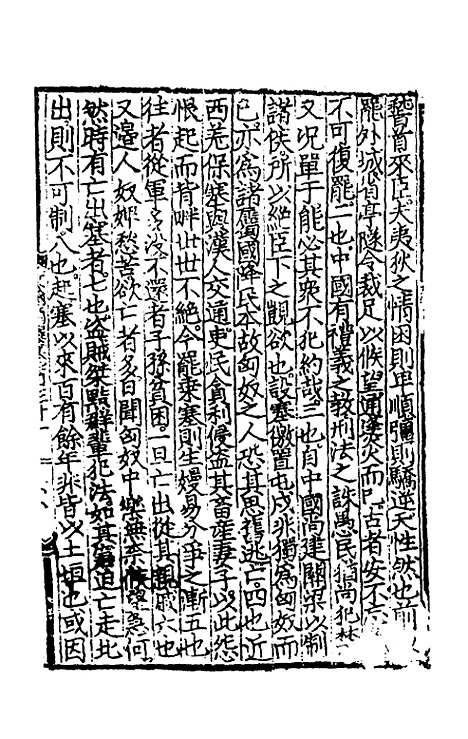 稽首來臣夫夷狄之情困則卑順彊則驕逆天性然也前以
罷外城省亭隧令裁足以候望通㷭火而已古者安不忘危
不可復罷二也中國有禮義之教刑法之誅愚民猶尚犯禁
又况單于能必其衆不犯約哉三也自中國尚建關梁以制
諸侯所以絶臣下之覬欲也設塞徼置屯戍非獨爲匈奴而
已亦爲諸屬國降民本故匈奴之人恐其思舊逃亡四也近
西羌保塞與漢人交通吏民貪利侵盗其畜産妻子以此怨
恨起而背畔世世不絶今罷乗塞則生嫚易分爭之漸五也
往者從軍多没不還者子孫貧困一旦亡出從其親戚六也
又邊人奴婢愁苦欲亡者多曰聞匈奴中樂無柰候望急何
然時有亡出塞者七也盗賊桀黠群輩犯法如其窮迫亡走北
出則不可制八也起塞以來百有餘年非皆以土垣也或因